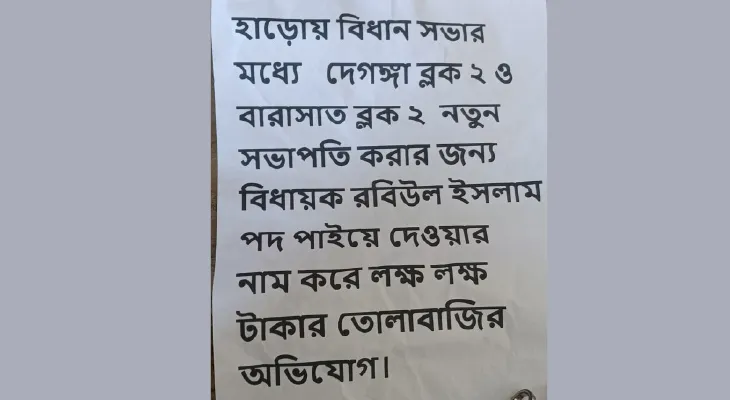 হাড়োয় বিধান সভার
মধ্যে দেগঙ্গা ব্লক ২ ও
বারাসাত ব্লক ২ নতুন
সভাপতি করার জন্য
বিধায়ক রবিউল ইসলাম
পদ পাইয়ে দেওয়ার
নাম করে লক্ষ লক্ষ
টাকার তোলাবাজির
অভিযোগ।